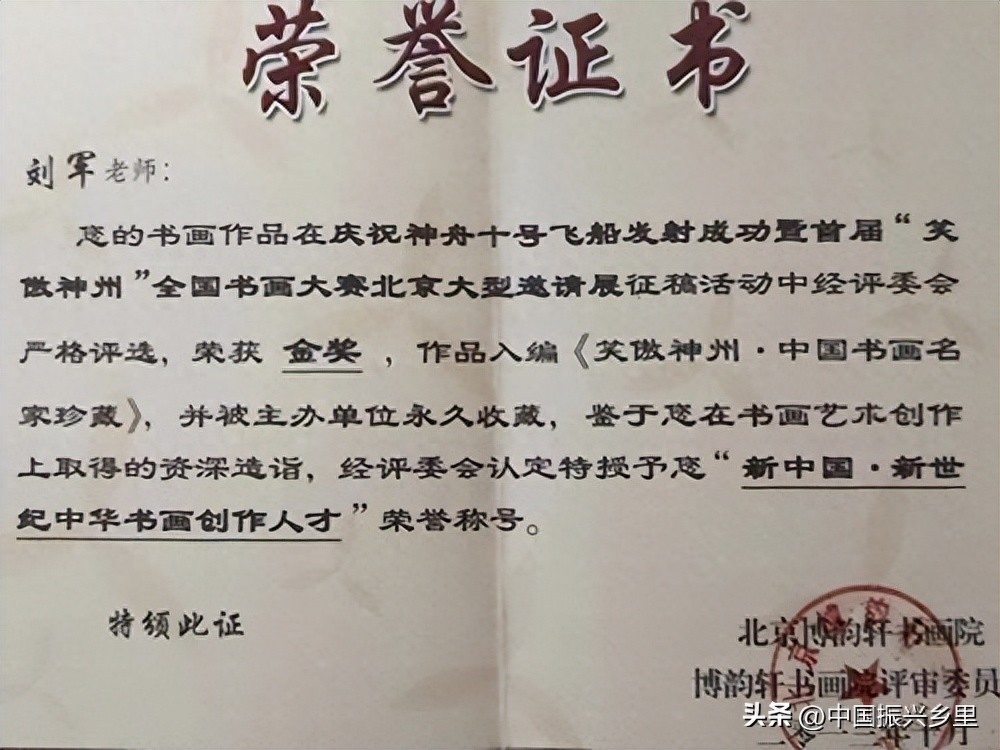 荣誉证书
刘军老师：
您的书画作品在庆祝神舟十号飞船发射成功暨首届“笑
傲神州”全国书画大赛北京大型邀请展征稿活动中经评委会
严格评选，荣获 金奖 ，作品入编《笑傲神州·中国书画名
家珍藏》，并被主办单位永久收藏，鉴于您在书画艺术创作
上取得的资深造诣，经评委会认定特授予您“新中国·新世
纪中华书画创作人才”荣誉称号。
特颁此证
北京博韵轩书画院
博韵轩书画院评审委员
头条 @中国振兴乡里